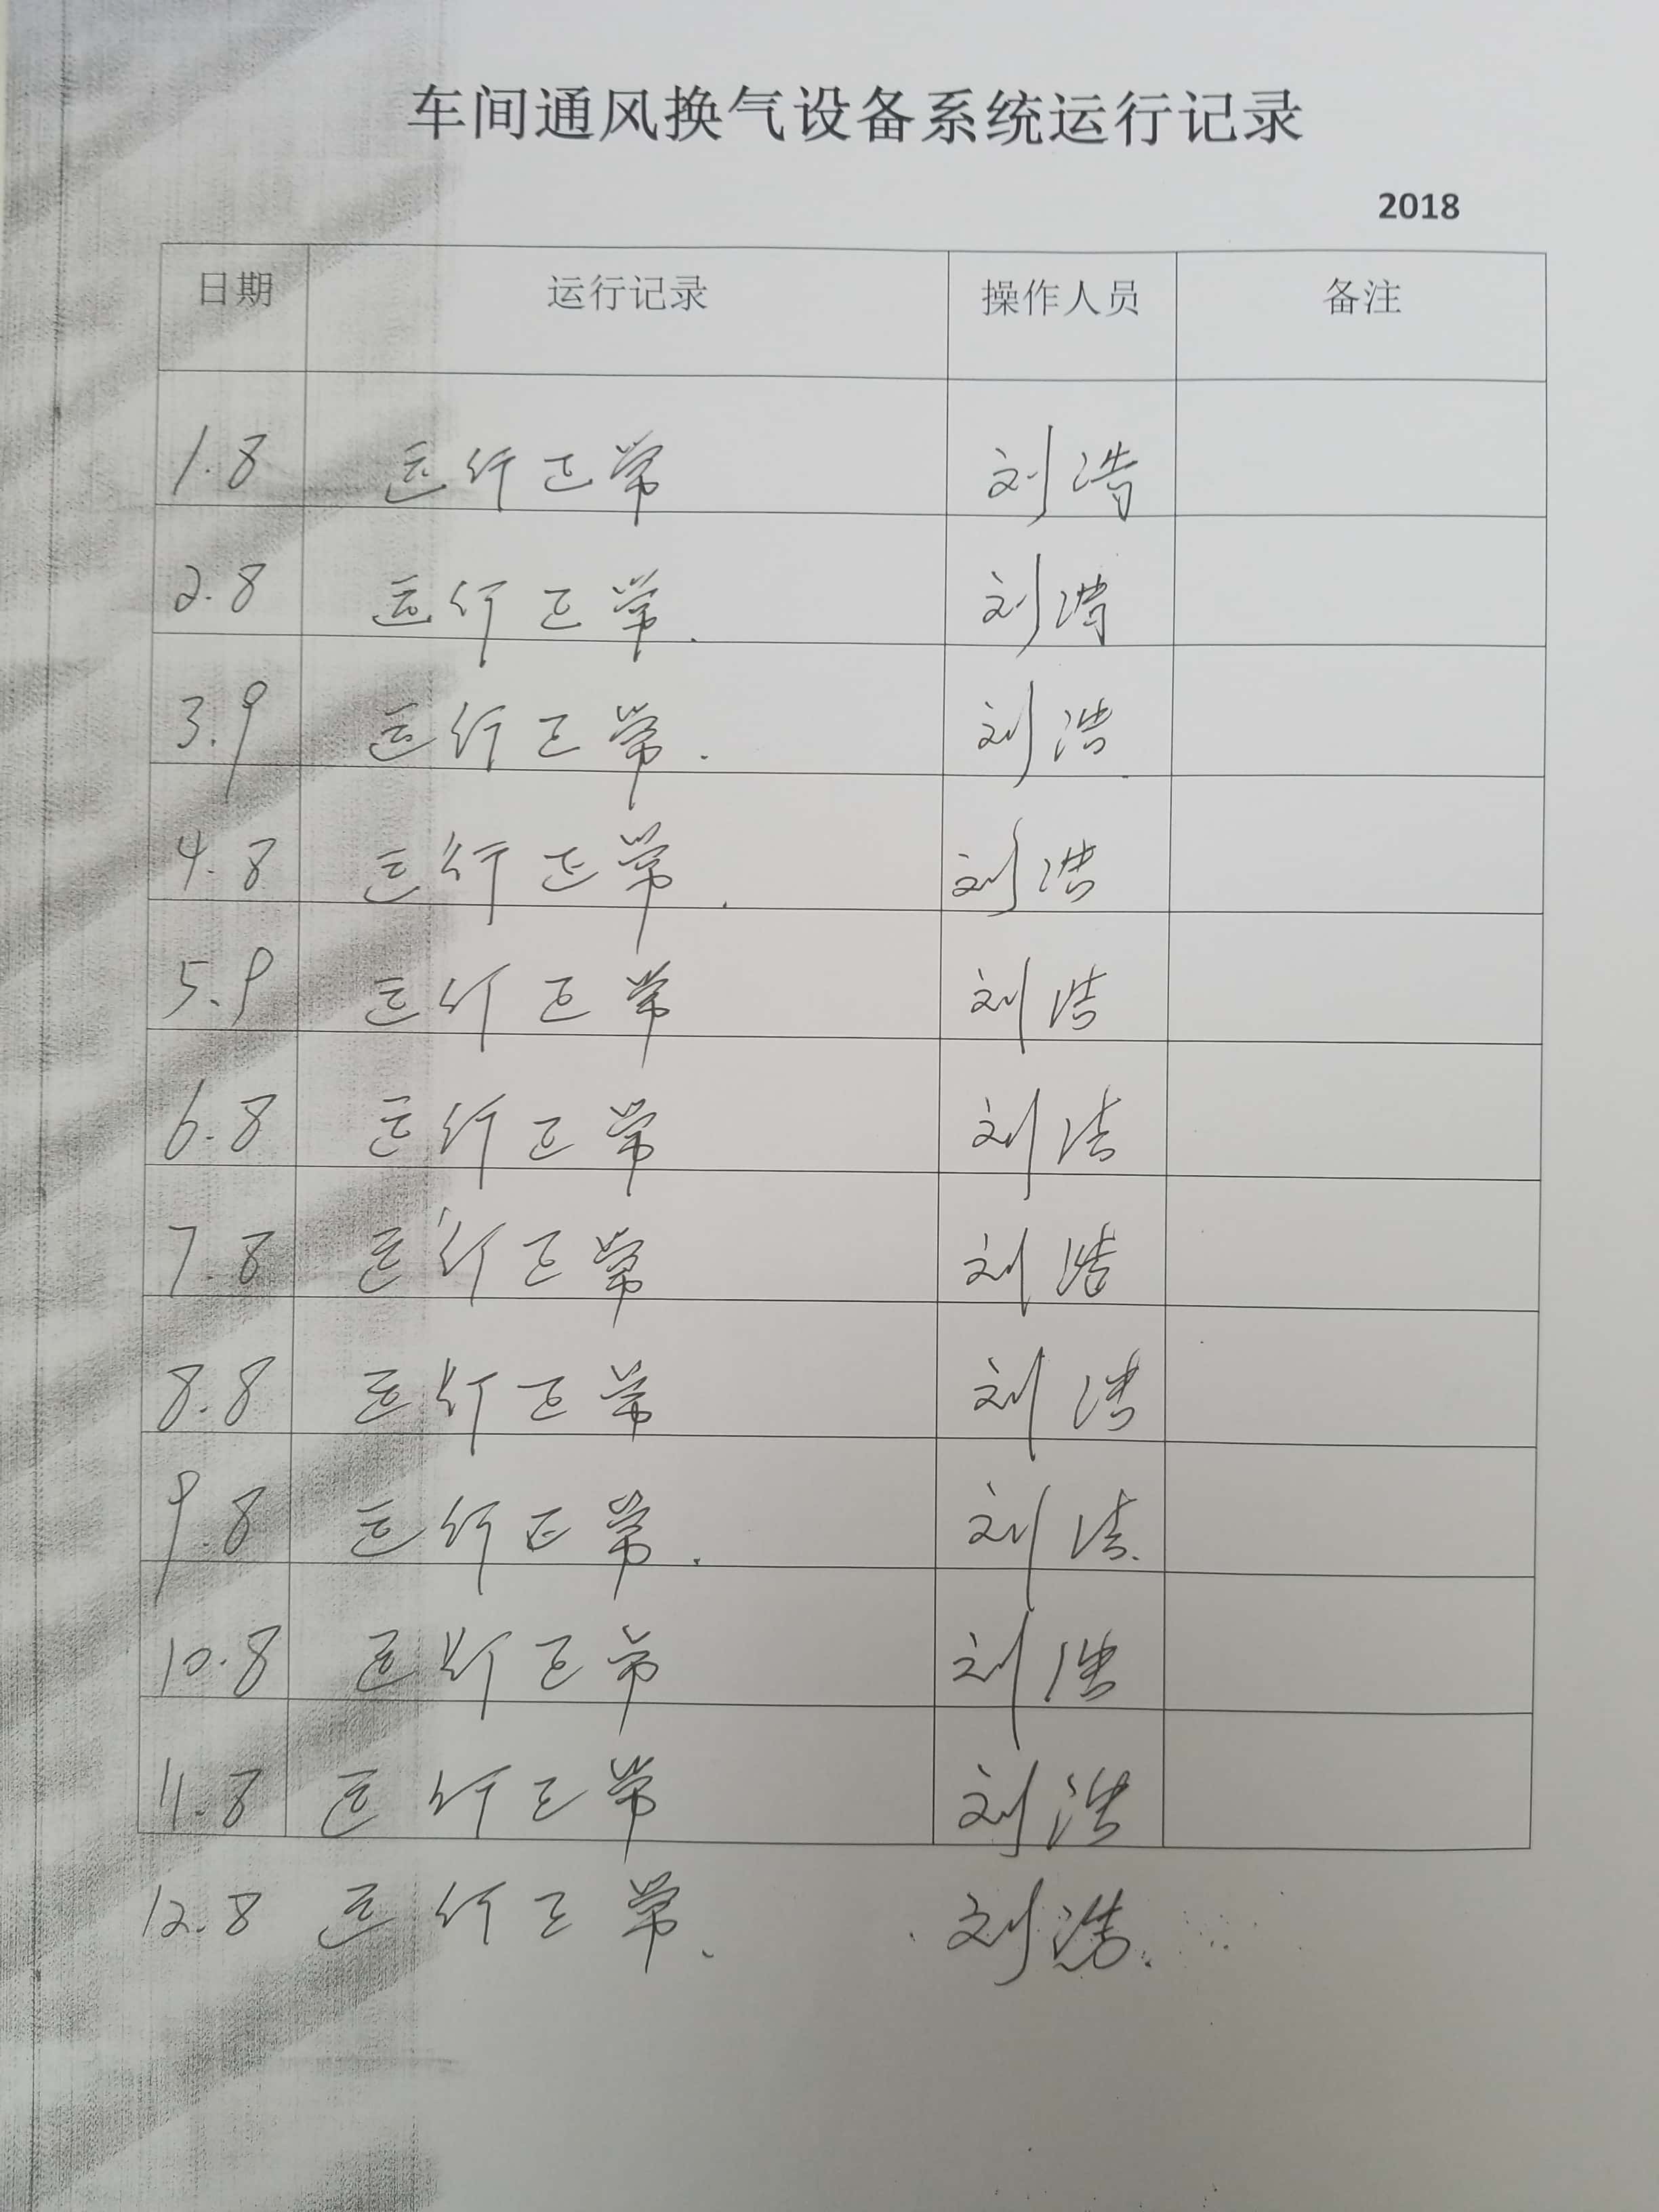 车间通风换气设备系统运行记录
2018
日期 运行记录 操作人员 备注
1.8 运行正常 刘浩
2.8 运行正常. 刘浩
3.9 运行正常. 刘浩
4.8 运行正常. 刘浩
5.9 运行正常 刘浩
6.8 运行正常 刘浩
7.8 运行正常 刘浩
8.8 运行正常 刘浩
9.8 运行正常. 刘浩.
10.8 运行正常 刘浩
11.8 运行正常 刘浩
12.8 运行正常. 刘浩.